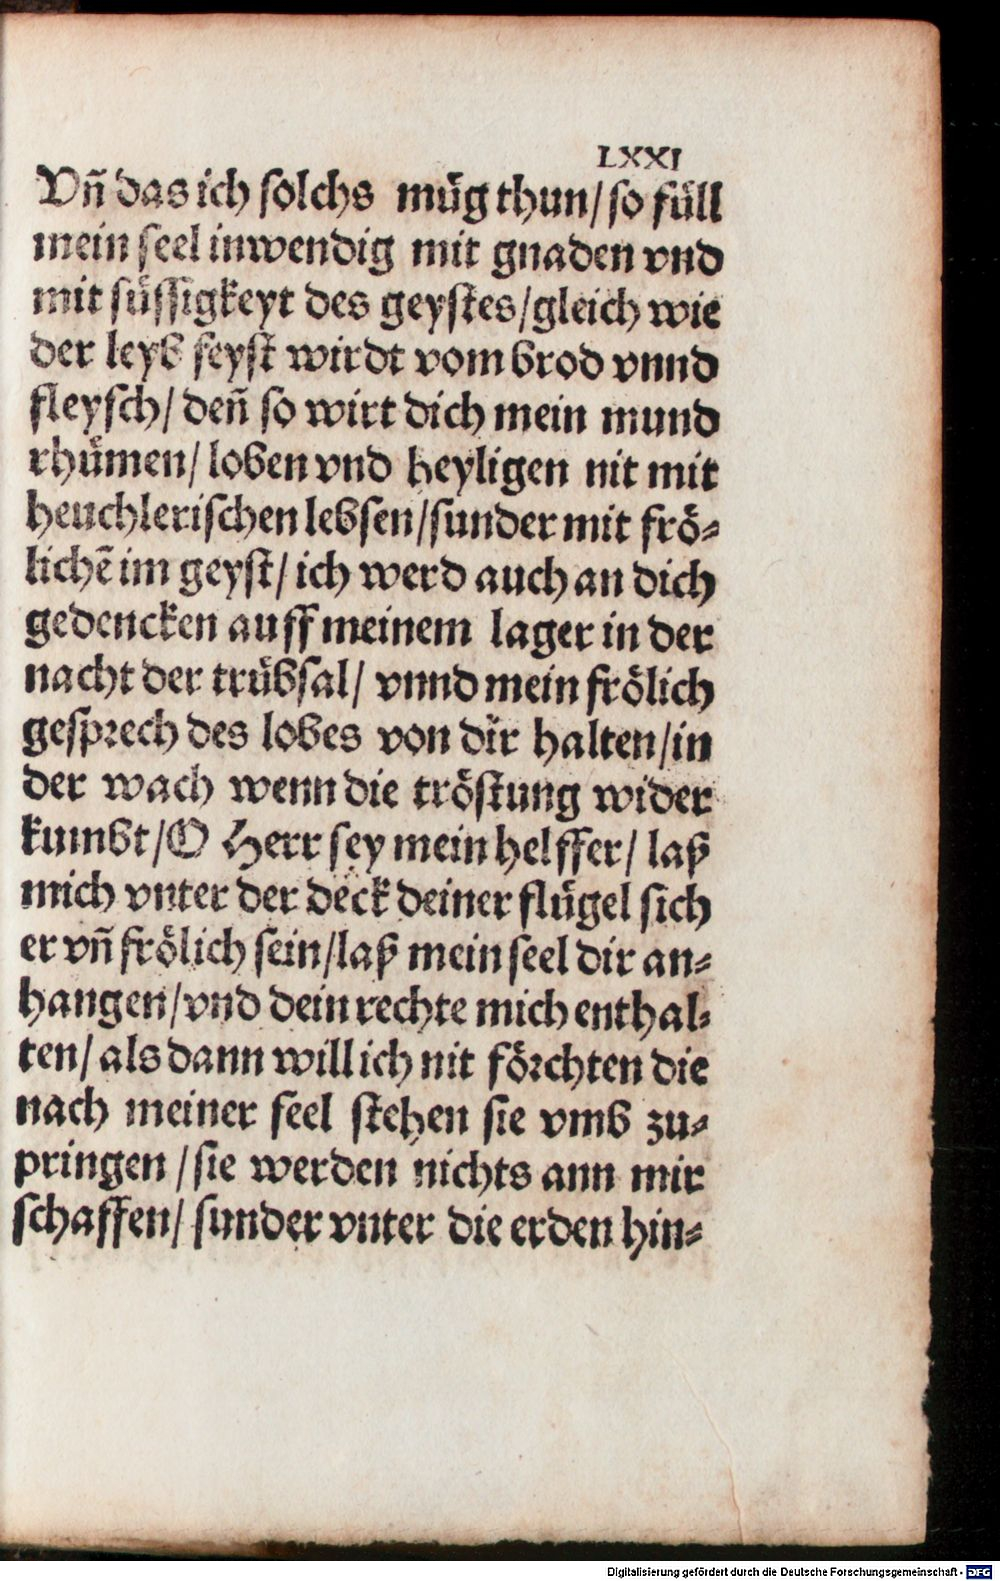 LXXI
Vñ das ich solchs müg thun/ so füll
mein seel inwendig mit gnaden vnd
mit süssigkeyt des geystes/ gleich wie
der leyb feyst wirdt vom brod vnnd
fleysch/ deñ so wirt dich mein mund
rhümen/ loben vnd heyligen nit mit
heuchlerischen lebsen/ sunder mit frö⸗
lichē im geyst/ ich werd auch an dich
gedencken auff meinem lager in der
nacht der trübsal/ vnnd mein frölich
gesprech des lobes von dir halten/ in
der wach wenn die tröstung wider
kumbt/ O Herr sey mein helffer/ laß
mich vnter der deck deiner flügel sich
er vñ frölich sein/ laß mein seel dir an⸗
hangen/ vnd dein rechte mich enthal⸗
ten/ als dann will ich nit förchten die
nach meiner seel stehen sie vmb zu⸗
pringen/ sie werden nichts ann mir
schaffen/ sunder vnter die erden hin⸗
Digitalisierung gefördert durch die Deutsche Forschungsgemeinschaft - DFG